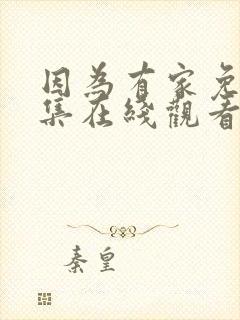 因為有家免
集在綫觀看
秦皇